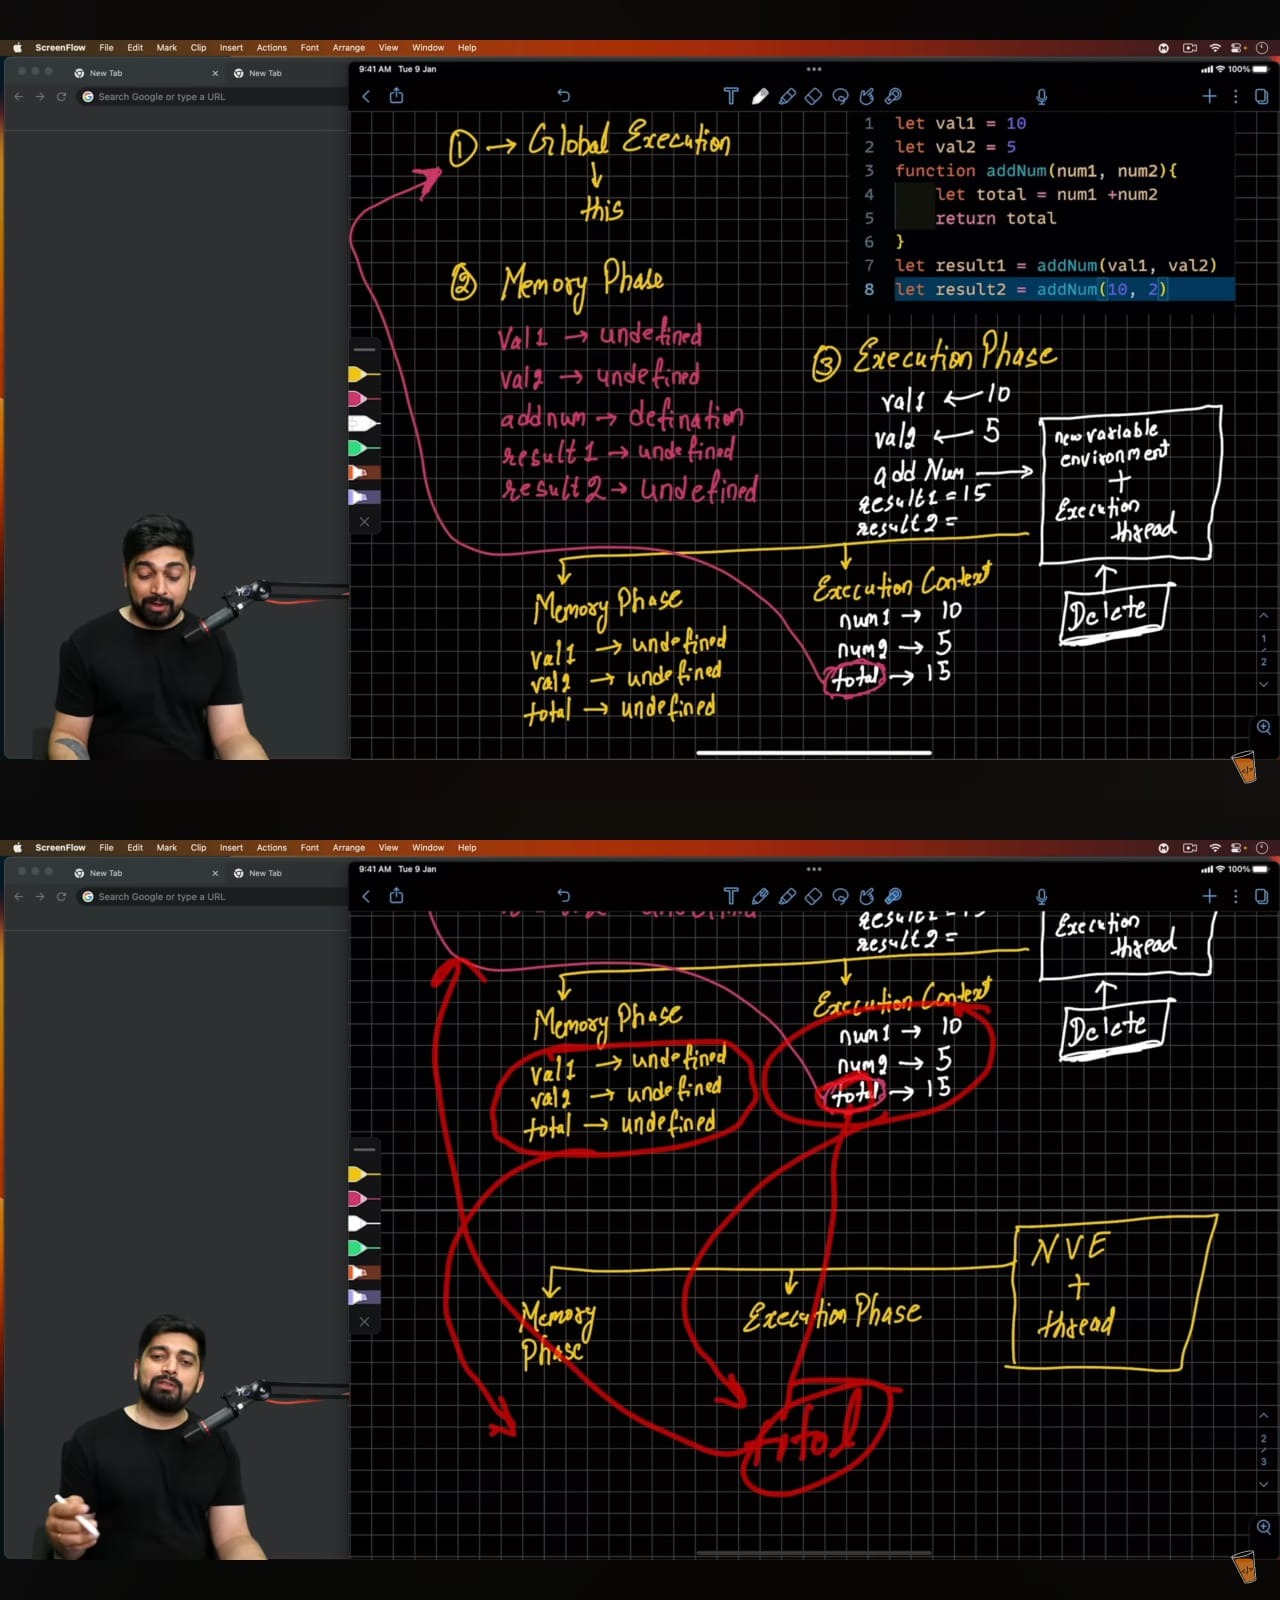 ScreenFlow File Edit Mark Clip Insert Actions Font Arrange View Window Help
New Tab
New Tab
Search Google or type a URL
9:41 AM Tue 9 Jan
100%
① → Global Execution
↓
this
② Memory Phase
Val1 → undefined
val2 → undefined
addnum → defination
result1 → undefined
result2 → undefined
1 let val1 = 10
2 let val2 = 5
3 function addNum(num1, num2){
4 let total = num1 +num2
5 return total
6 }
7 let result1 = addNum(val1, val2)
8 let result2 = addNum(10, 2)
③ Execution Phase
val1 ← 10
val2 ← 5
add Num →
result1 = 15
result2 =
new variable
environment
+
Execution
thread
Delete
Memory Phase
val1 → undefined
val2 → undefined
total → undefined
Execution Context
num1 → 10
num2 → 5
total → 15
1
2
ScreenFlow File Edit Mark Clip Insert Actions Font Arrange View Window Help
New Tab
New Tab
Search Google or type a URL
9:41 AM Tue 9 Jan
100%
result2 =
Execution
thread
Delete
Memory Phase
val1 → undefined
val2 → undefined
total → undefined
Execution Context
num1 → 10
num2 → 5
total → 15
NVE
+
thread
Memory
Phase
Execution Phase
total
2
3